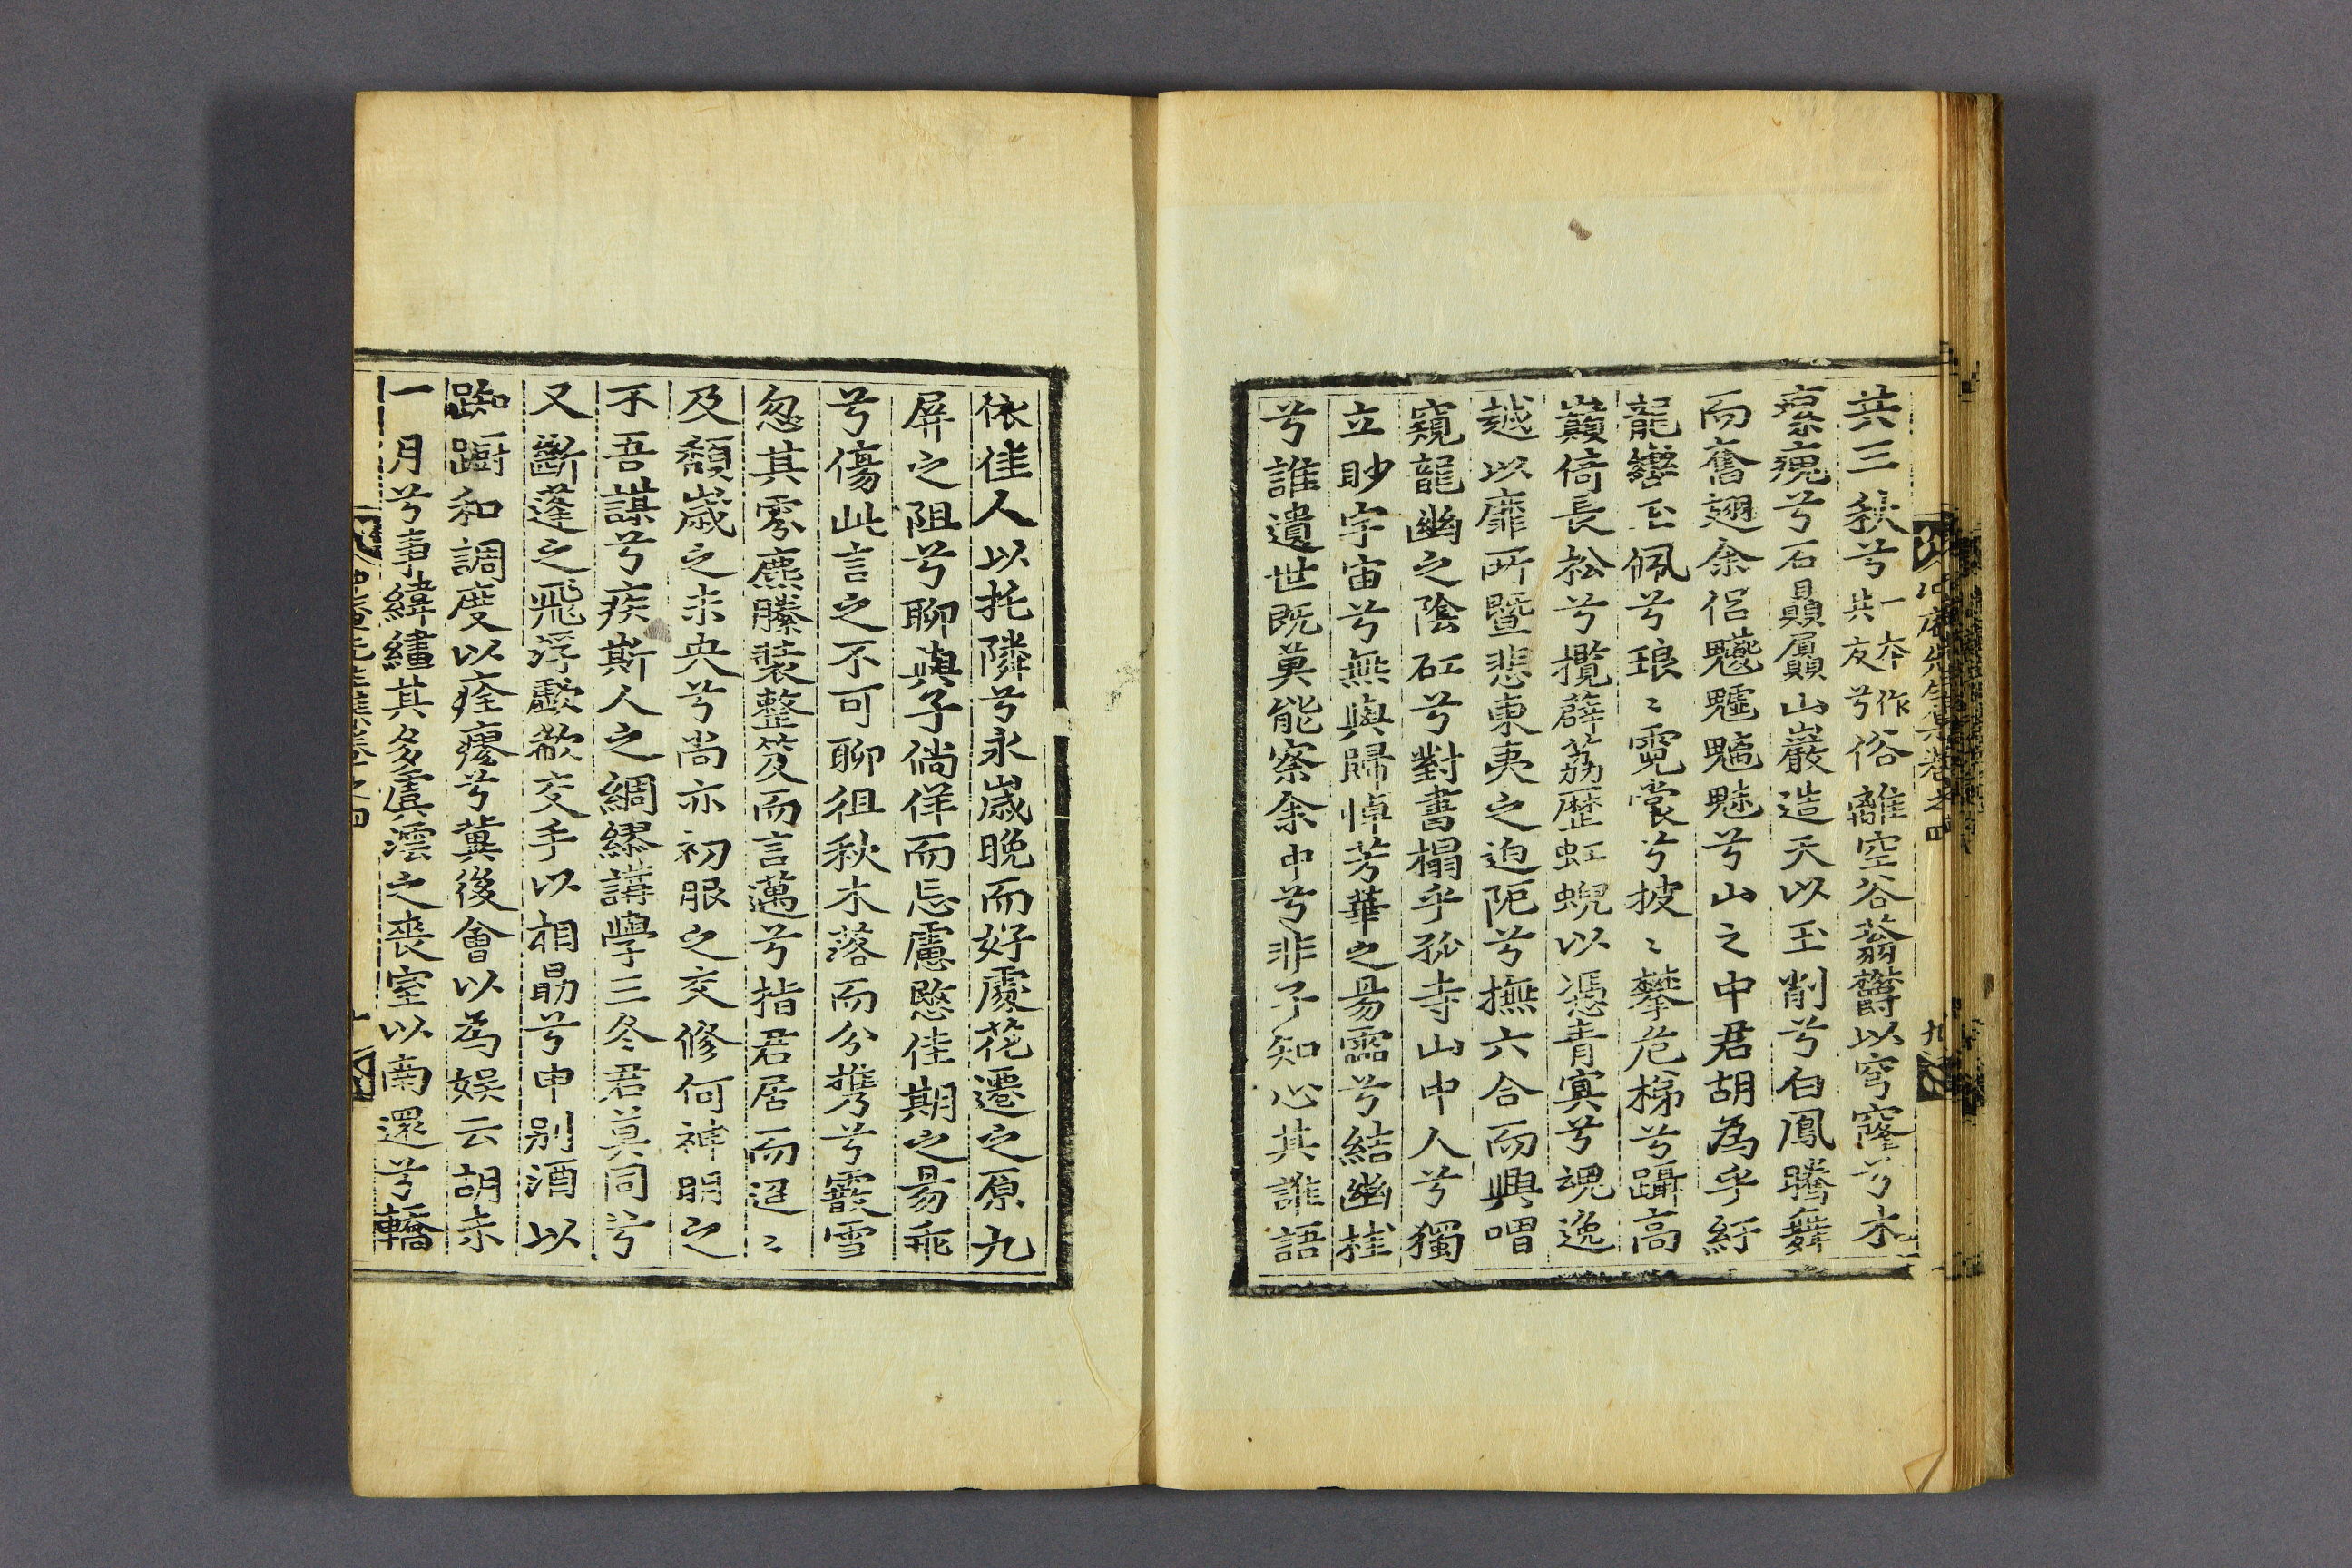 共三秋兮一本作共友兮俗離空谷蓊欝以穹窿兮木
裊磈兮石贔屭山巖造天以玉削兮白鳳騰舞
而奮翅余侶魑魖魍魅兮山之中君胡為乎紆
龍轡玉佩兮琅〻霓裳兮披〻攀危梯兮躡高
巔倚長松兮攬薜荔歷虹蜺以憑青冥兮魂逸
越以靡所曁悲東夷之迫阨兮撫六合而興喟
窺龍幽之陰矼兮對書榻乎孤寺山中人兮獨
立眇宇宙兮無與歸悼芳華之昜霑兮結幽桂
兮誰遺世既莫能察余中兮非子知心其誰語
冲庵先生集卷之四
九
依佳人以托隣兮永歲晚而好處花遷之原九
屏之阻兮聊與子徜徉而忘慮愍佳期之昜乖
兮傷此言之不可聊徂秋木落而分携兮霰雪
忽其雰麃縢裝整笈而言邁兮指君居而迢〻
及頹歲之未央兮尚亦初服之交修何神明之
不吾謀兮疾斯人之綢繆講學三冬君莫同兮
又斷蓬之飛浮歔欷交手以相勗兮申別酒以
踟躕和調度以痊瘳兮冀後會以為娱云胡未
一月兮事緯繣其多虞澐之喪室以南還兮轎